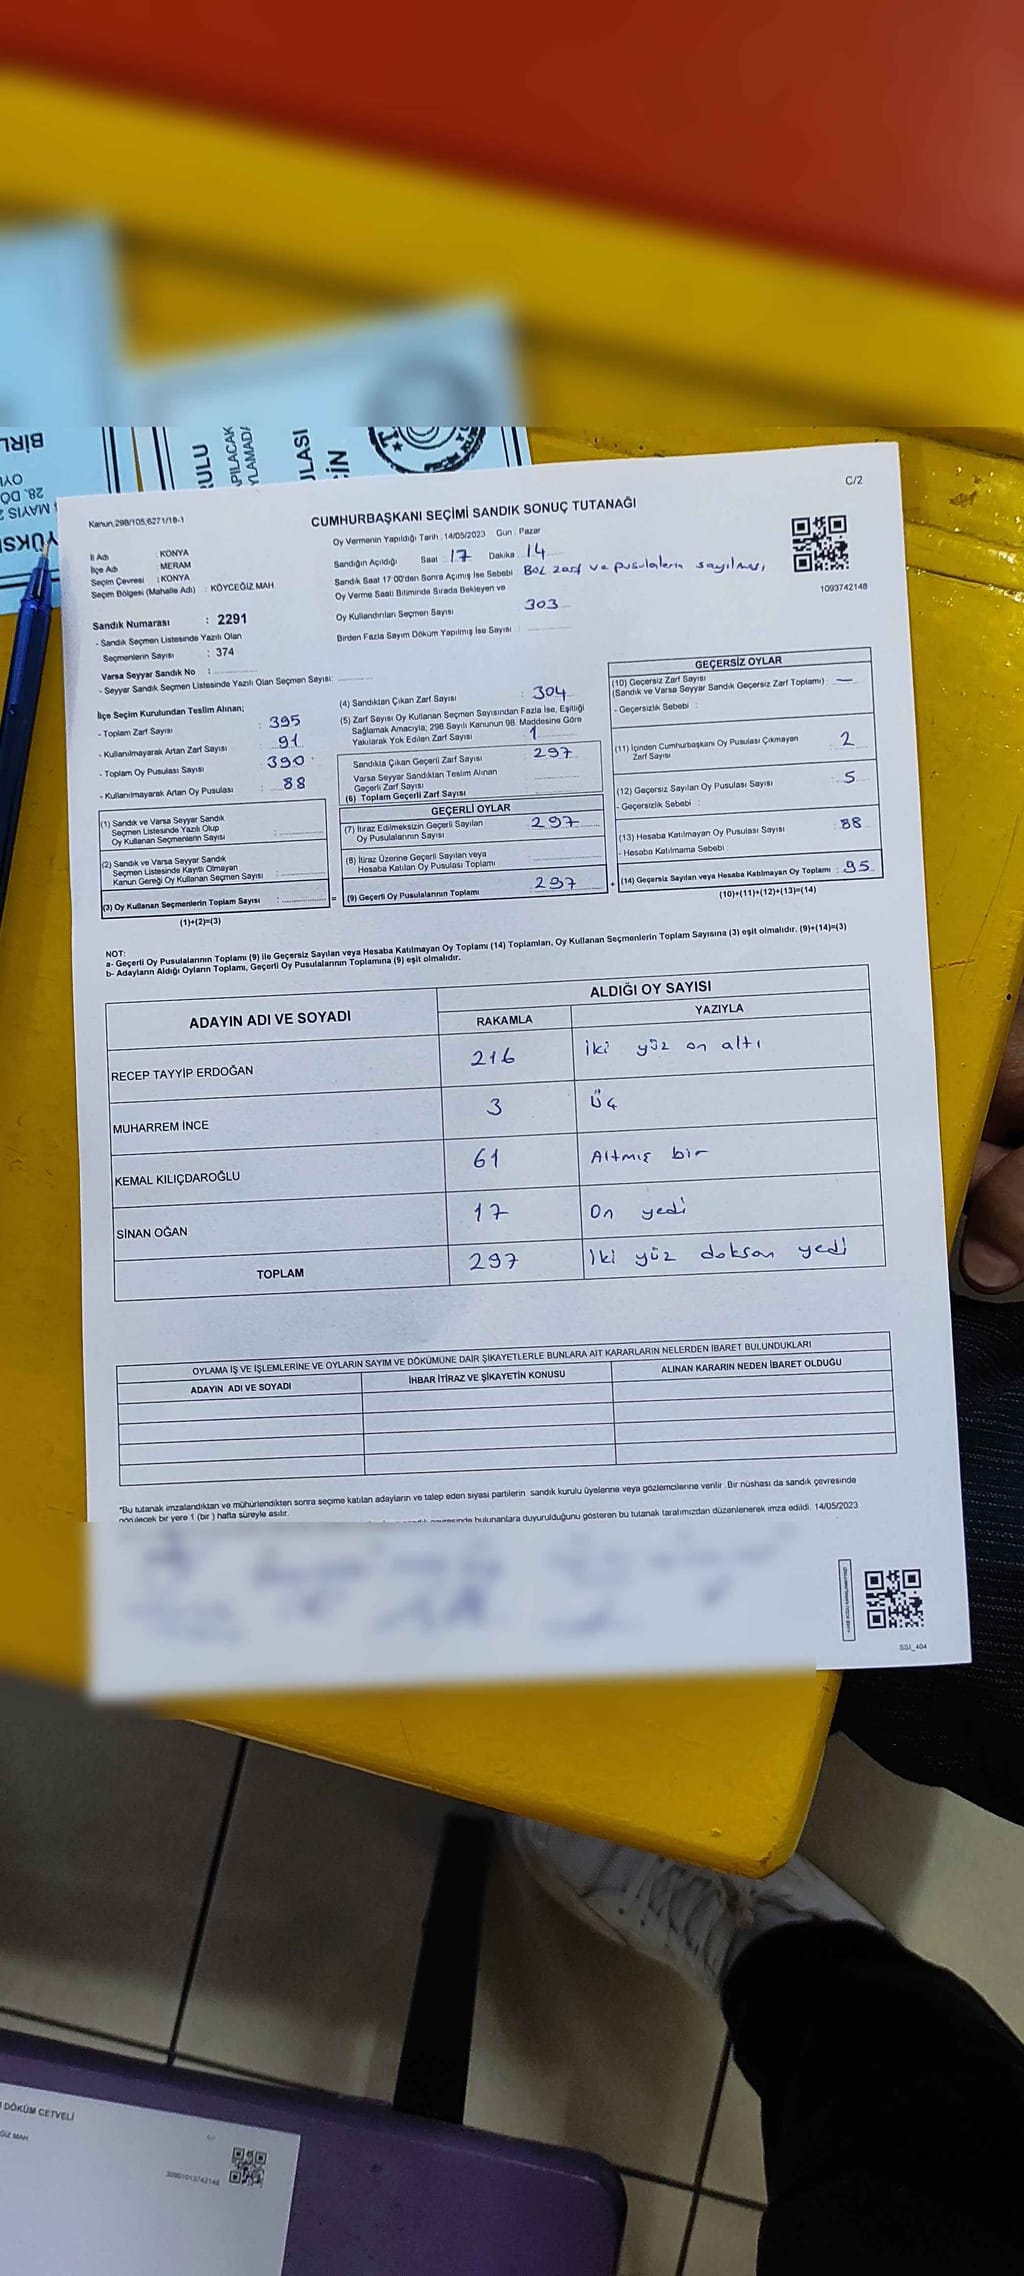 BİRLİ
OYU
28. DÖ
MAYIS 2
YÜKS
RULU
APILACAK
YLAMADA
ULASI
İN
C/2
Kanun,298/105,6271/18-1
CUMHURBAŞKANI SEÇİMİ SANDIK SONUÇ TUTANAĞI
İl Adı : KONYA
İlçe Adı : MERAM
Seçim Çevresi : KONYA
Seçim Bölgesi (Mahalle Adı) : KÖYCEĞİZ MAH
Sandık Numarası : 2291
- Sandık Seçmen Listesinde Yazılı Olan
Seçmenlerin Sayısı : 374
Varsa Seyyar Sandık No :
- Seyyar Sandık Seçmen Listesinde Yazılı Olan Seçmen Sayısı:
Oy Vermenin Yapıldığı Tarih : 14/05/2023 Gün : Pazar
Sandığın Açıldığı Saat 17 Dakika 14
Sandık Saat 17 00'den Sonra Açımış İse Sebebi Bol zarf ve pusulaların sayılması,
Oy Verme Saati Bitiminde Sırada Bekleyen ve
Oy Kullandırılan Seçmen Sayısı 303
Birden Fazla Sayım Döküm Yapılmış İse Sayısı :
1093742148
İlçe Seçim Kurulundan Teslim Alınan;
- Toplam Zarf Sayısı : 395
- Kullanılmayarak Artan Zarf Sayısı : 91
- Toplam Oy Pusulası Sayısı : 390
- Kullanılmayarak Artan Oy Pusulası : 88
(1) Sandık ve Varsa Seyyar Sandık
Seçmen Listesinde Yazılı Olup
Oy Kullanan Seçmenlerin Sayısı :
(2) Sandık ve Varsa Seyyar Sandık
Seçmen Listesinde Kayıtlı Olmayan
Kanun Gereği Oy Kullanan Seçmen Sayısı :
(3) Oy Kullanan Seçmenlerin Toplam Sayısı : =
(1)+(2)=(3)
(4) Sandıktan Çıkan Zarf Sayısı : 304
(5) Zarf Sayısı Oy Kullanan Seçmen Sayısından Fazla İse, Eşitliği
Sağlamak Amacıyla; 298 Sayılı Kanunun 98. Maddesine Göre
Yakılarak Yok Edilen Zarf Sayısı : 1
Sandıkta Çıkan Geçerli Zarf Sayısı : 297
Varsa Seyyar Sandıktan Teslim Alınan
Geçerli Zarf Sayısı
(6) Toplam Geçerli Zarf Sayısı
GEÇERLİ OYLAR
(7) İtiraz Edilmeksizin Geçerli Sayılan
Oy Pusulalarının Sayısı : 297
(8) İtiraz Üzerine Geçerli Sayılan veya
Hesaba Katılan Oy Pusulası Toplamı :
(9) Geçerli Oy Pusulalarının Toplamı : 297 +
GEÇERSİZ OYLAR
(10) Geçersiz Zarf Sayısı
(Sandık ve Varsa Seyyar Sandık Geçersiz Zarf Toplamı) : —
- Geçersizlik Sebebi :
(11) İçinden Cumhurbaşkanı Oy Pusulası Çıkmayan
Zarf Sayısı : 2
(12) Geçersiz Sayılan Oy Pusulası Sayısı : 5
- Geçersizlik Sebebi :
(13) Hesaba Katılmayan Oy Pusulası Sayısı : 88
- Hesaba Katılmama Sebebi
(14) Geçersiz Sayılan veya Hesaba Katılmayan Oy Toplamı : 95
(10)+(11)+(12)+(13)=(14)
NOT:
a- Geçerli Oy Pusulalarının Toplamı (9) ile Geçersiz Sayılan veya Hesaba Katılmayan Oy Toplamı (14) Toplamları, Oy Kullanan Seçmenlerin Toplam Sayısına (3) eşit olmalıdır. (9)+(14)=(3)
b- Adayların Aldığı Oyların Toplamı, Geçerli Oy Pusulalarının Toplamına (9) eşit olmalıdır.
ADAYIN ADI VE SOYADI ALDIĞI OY SAYISI
RAKAMLA YAZIYLA
RECEP TAYYİP ERDOĞAN 216 iki yüz on altı
MUHARREM İNCE 3 Üç
KEMAL KILIÇDAROĞLU 61 Altmış bir
SİNAN OĞAN 17 On yedi
TOPLAM 297 İki yüz doksan yedi
OYLAMA İŞ VE İŞLEMLERİNE VE OYLARIN SAYIM VE DÖKÜMÜNE DAİR ŞİKAYETLERLE BUNLARA AİT KARARLARIN NELERDEN İBARET BULUNDUKLARI
ADAYIN ADI VE SOYADI İHBAR İTİRAZ VE ŞİKAYETİN KONUSU ALINAN KARARIN NEDEN İBARET OLDUĞU
*Bu tutanak imzalandıktan ve mühürlendikten sonra seçime katılan adayların ve talep eden siyasi partilerin sandık kurulu üyelerine veya gözlemcilerine verilir. Bir nüshası da sandık çevresinde
görülecek bir yere 1 (bir ) hafta süreyle asılır.
bulunanlara duyurulduğunu gösteren bu tutanak tarafımızdan düzenlenerek imza edildi. 14/05/2023
SSI_404
DÖKÜM CETVELİ
ĞİZ MAH